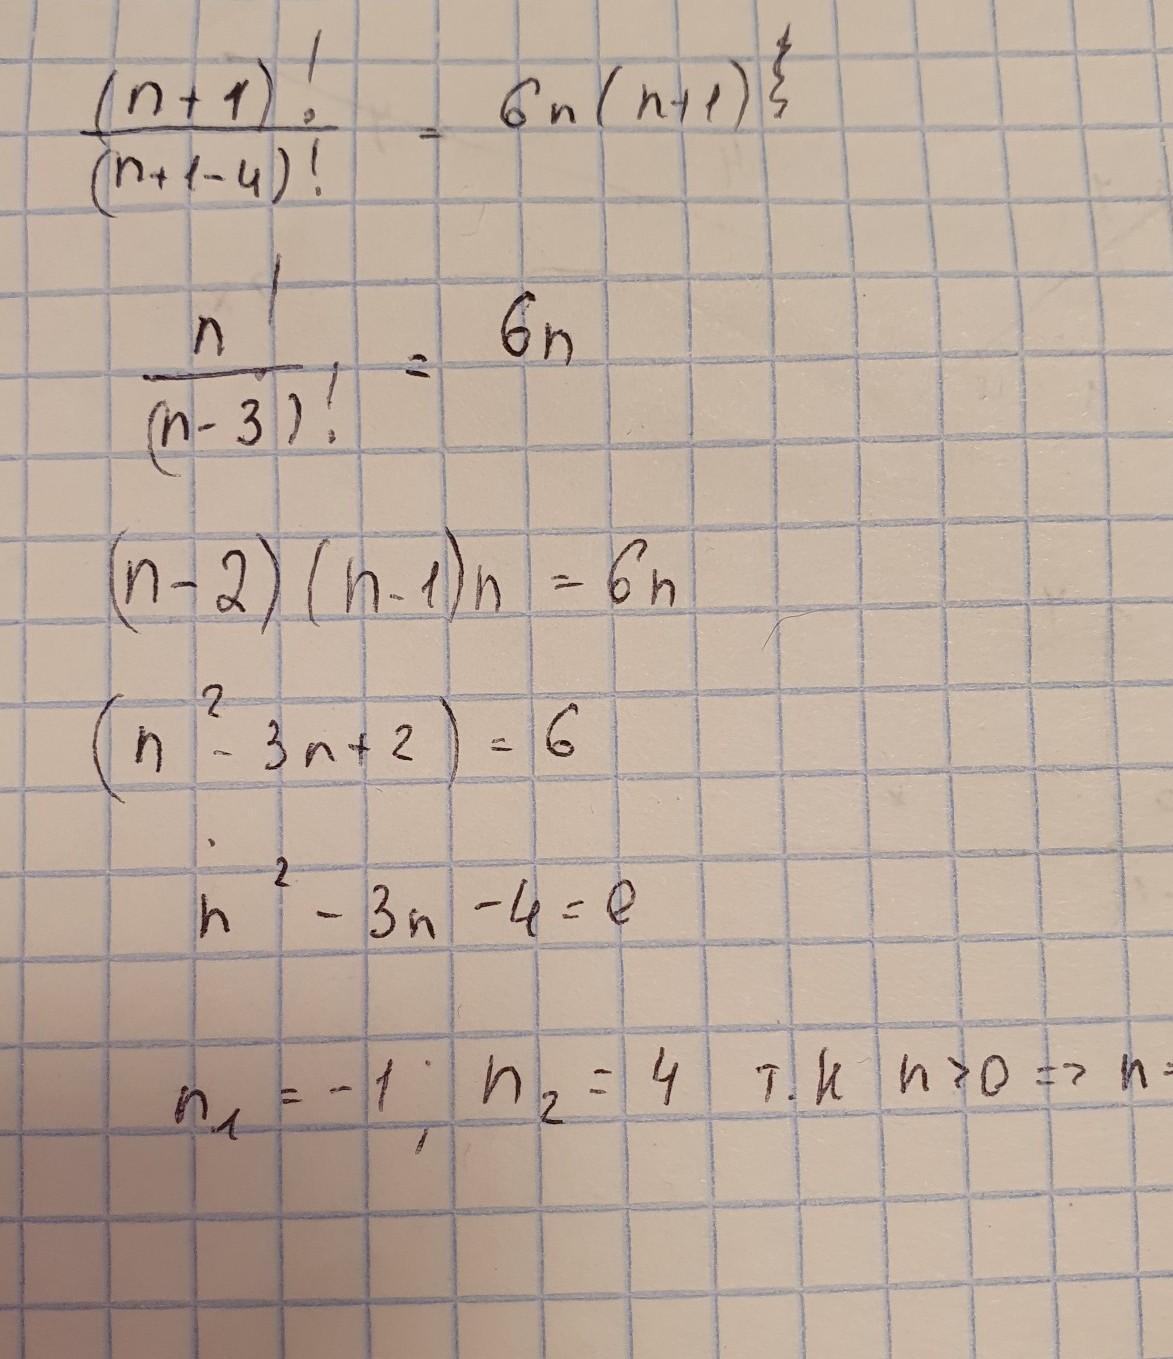 (n+1)! / (n+1-4)! = 6n(n+1)
n! / (n-3)! = 6n
(n-2)(n-1)n = 6n
(n² - 3n + 2) = 6
n² - 3n - 4 = 0
n₁ = -1; n₂ = 4 т.к n>0 => n=